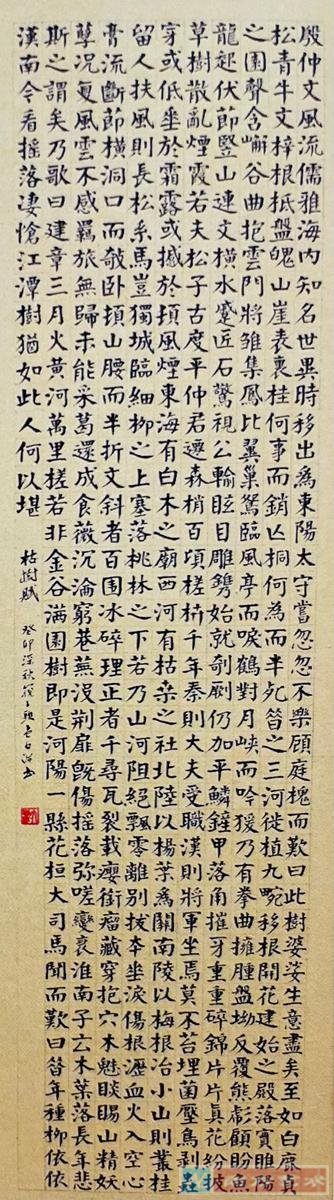 殷仲文風流儒雅海內知名世異時移出為東陽太守嘗忽忽不樂顧庭槐而歎曰此樹婆娑生意盡矣至如白鹿真
松青牛文梓根柢盤魄山崖表裏桂何事而銷亡桐何為而半死昔之三河徙植九畹移根開花建始之殿落實睢陽
之園聲含嶰谷曲抱雲門將雛集鳳比翼巢鴛臨風亭而唳鶴對月峽而吟猨乃有拳曲擁腫盤坳反覆熊彪顧盼魚
龍起伏節豎山連文橫水蹙匠石驚視公輸眩目雕鐫始就剞劂仍加平鱗鏟甲落角摧牙重重碎錦片片真花紛披
草樹散亂煙霞若夫松子古度平仲君遷森梢百頃槎枿千年秦則大夫受職漢則將軍坐焉莫不苔埋菌壓鳥剝蟲
穿或低垂於霜露或撼於頓風煙東海有白木之廟西河有枯桑之社北陸以楊葉為關南陵以梅根冶小山則叢桂
留人扶風則長松系馬豈獨城臨細柳之上塞落桃林之下若乃山河阻絕飄零離別拔本垂淚傷根瀝血火入空心
膏流斷節橫洞口而欹卧頓山腰而半折文斜者百圍冰碎理正者千尋瓦裂載癭銜瘤藏穿抱穴木魅睒睗山精妖
孽況復風雲不感羈旅無歸未能采葛還成食薇沉淪窮巷蕪沒荊扉既傷搖落彌嗟變衰淮南子云木葉落長年悲
斯之謂矣乃歌曰建章三月火黃河萬里槎若非金谷滿園樹即是河陽一縣花桓大司馬聞而歎曰昔年種柳依依
漢南今看搖落悽愴江潭樹猶如此人何以堪
枯樹賦 癸卯深秋